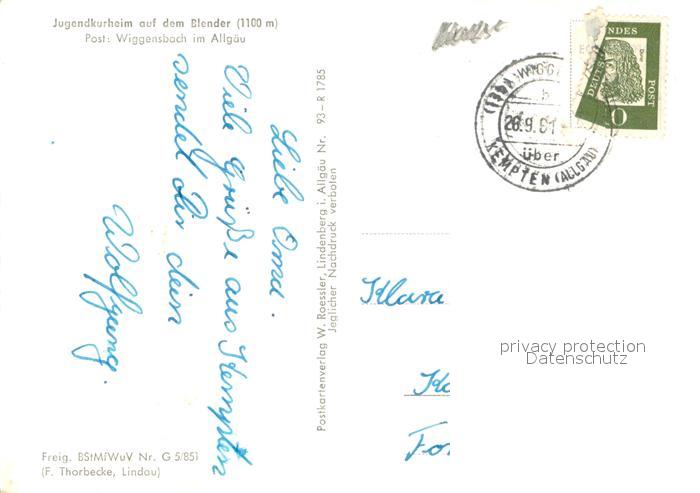 Jugendkurheim auf dem Blender (1100 m)
Post: Wiggensbach im Allgäu
Liebe Oma.
Viele Grüße aus Kempten
sendet dir dein
Wolfgang.
Freig. BStMfWuV Nr. G 5/851
(F. Thorbecke, Lindau)
Postkartenverlag W. Roessler, Lindenberg i. Allgäu Nr. 93-R 1785
Jeglicher Nachdruck verboten
WIGG
b
26.9.61
über
KEMPTEN (ALLGÄU)
NDES
POST
DEUTS
0
Klara
Ko
For
privacy protection
Datenschutz